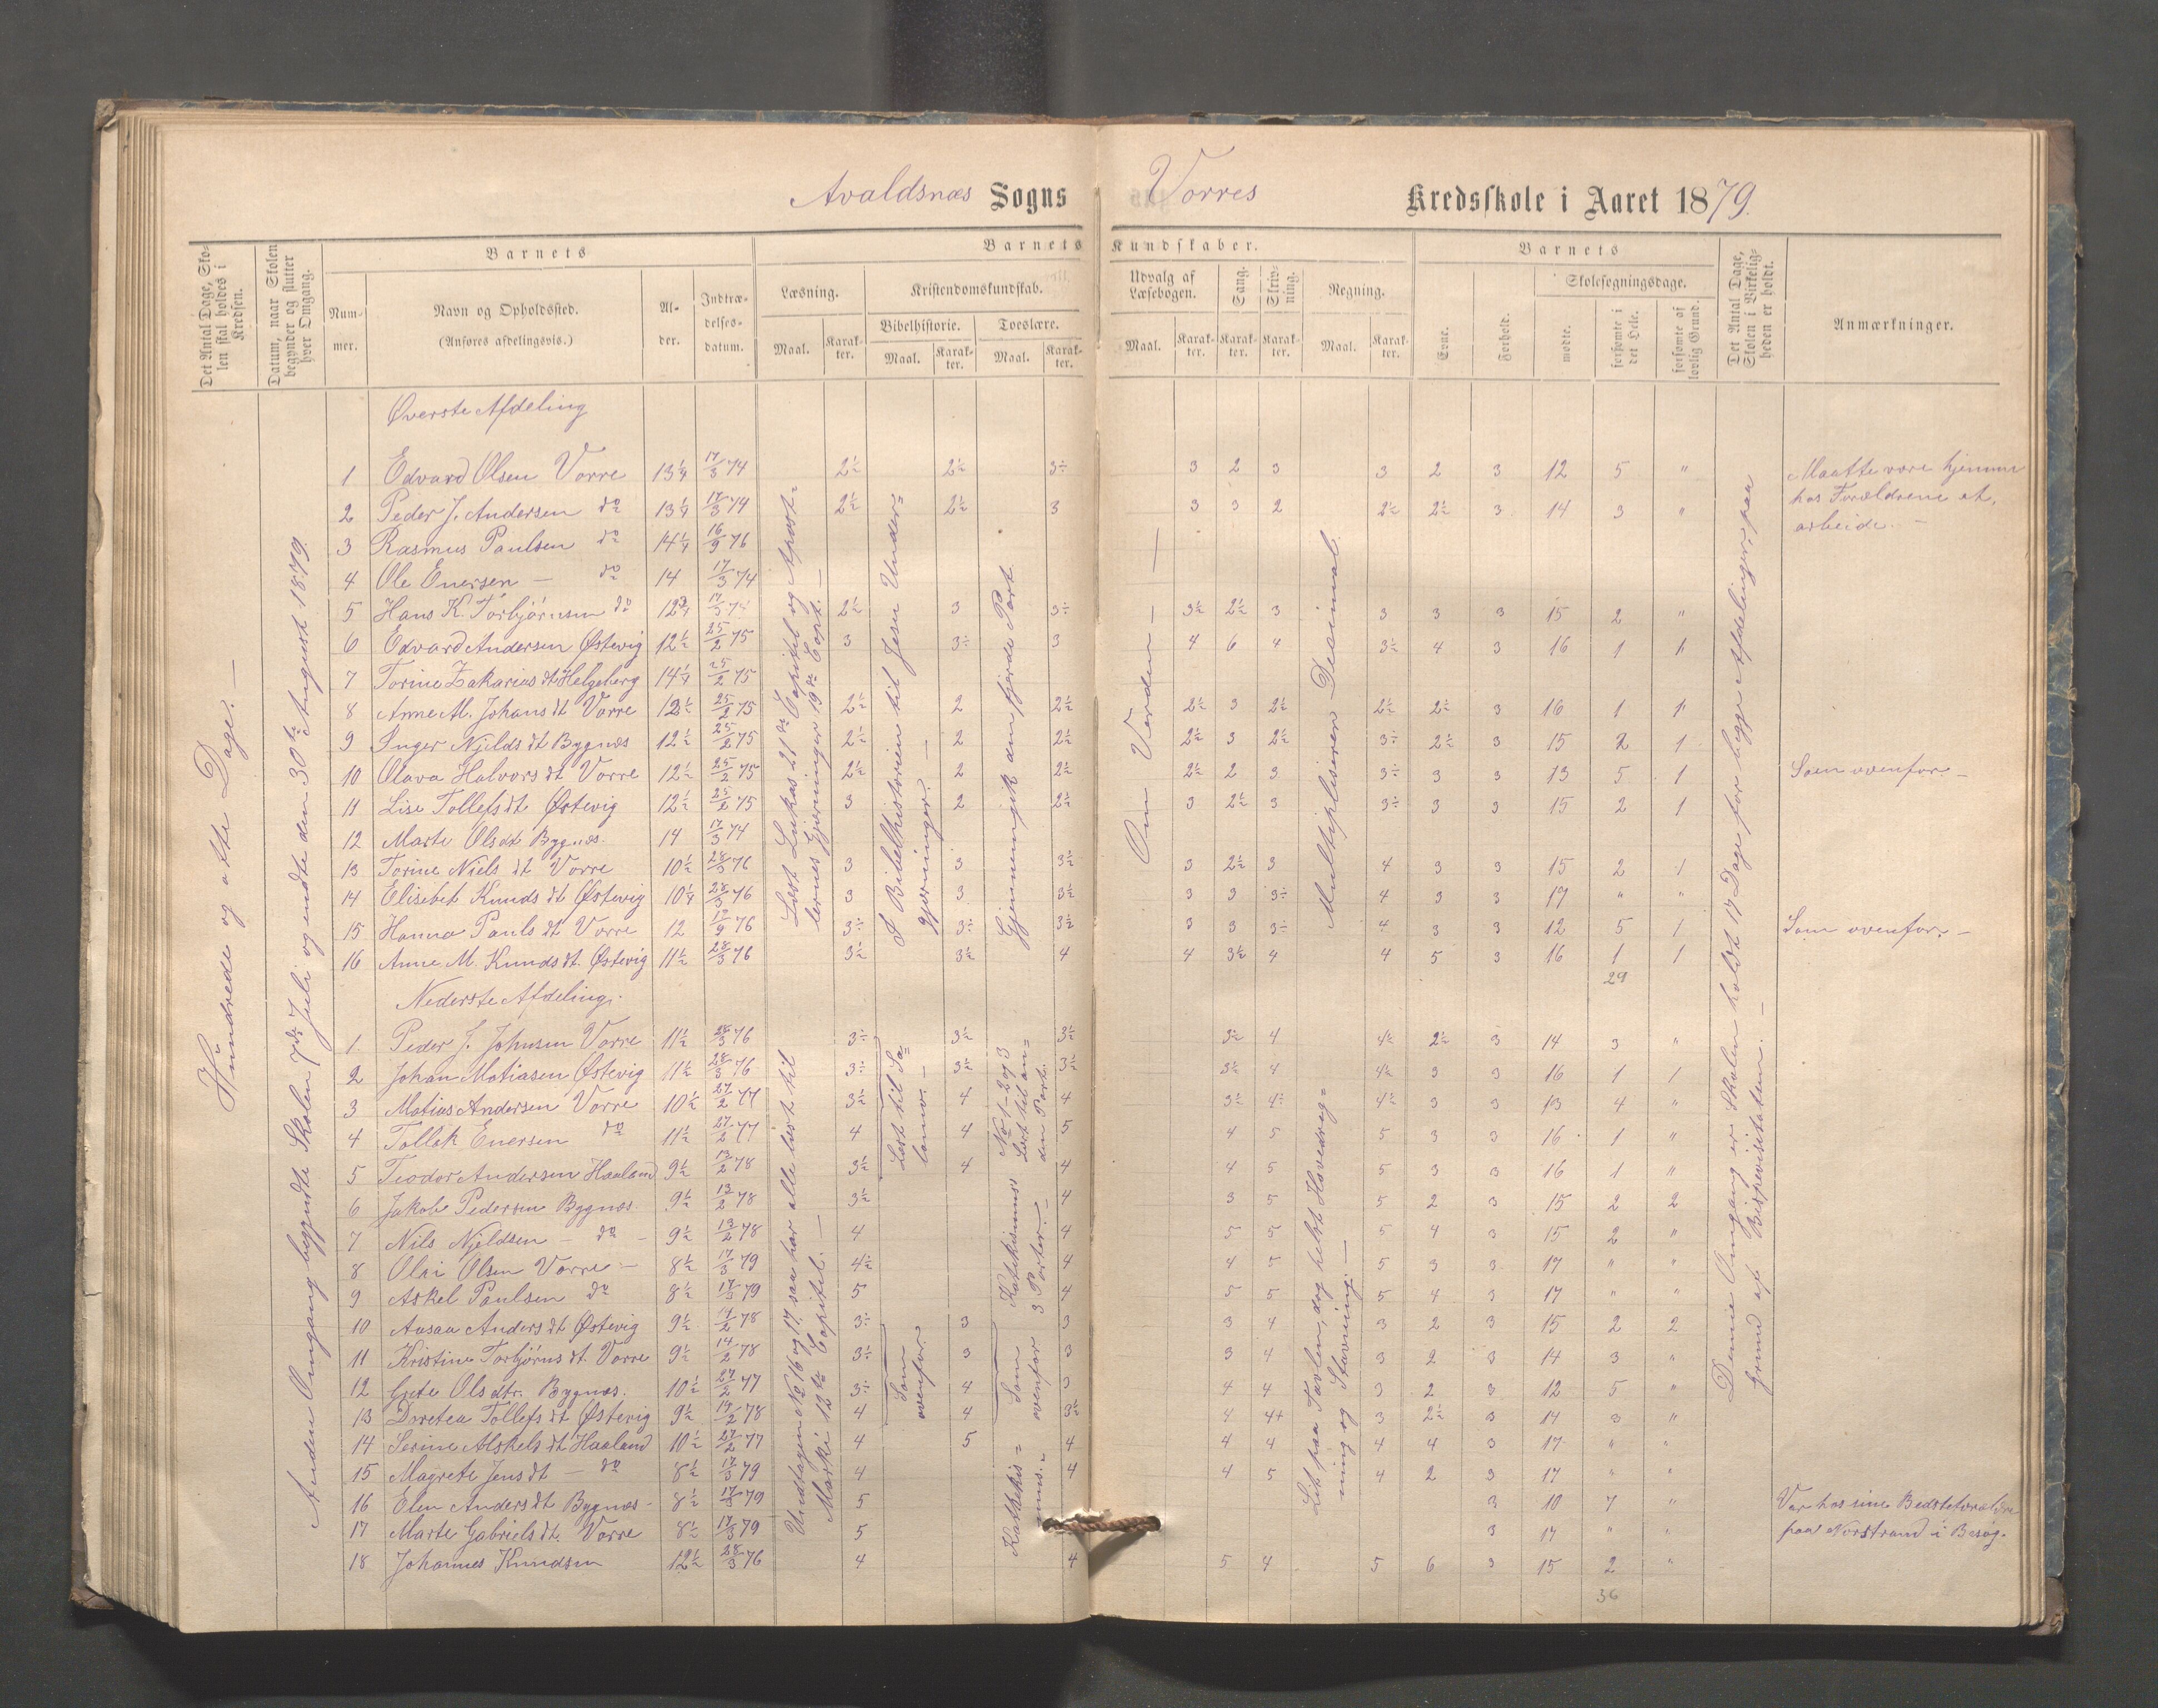 Avaldsnæs Sogns Vorres Kredsskole i Aaret 1879.
Det Antal Dage, Skolen skal holdes i Kredsen.
Datum, naar Skolen begynder og slutter hver Omgang.
Barnets
Nummer.
Navn og Opholdssted.
(Anføres afdelingsvis.)
Alder.
Indtrædelsesdatum.
Barnets Kundskaber.
Læsning.
Maal.
Karakter.
Kristendomskundskab.
Bibelhistorie.
Maal.
Karakter.
Troeslære.
Maal.
Karakter.
Udvalg af Læsebogen.
Maal.
Karakter.
Sang.
Karakter.
Skrivning.
Karakter.
Regning.
Maal.
Karakter.
Barnets
Evne.
Forhold.
Skolesøgningsdage.
mødte.
forsømte i det Hele.
forsømte af lovlig Grund.
Det Antal Dage, Skolen i Virkeligheden er holdt.
Anmærkninger.
Hundrede og otte Dage. —
Anden Omgang begyndte Skolen 7de Juli og endte den 30te August 1879.
Øverste Afdeling
1 Edvard Olsen Vorre 13 1/4 17/3 74 2½ 2½ 3÷ 3 2 3 3 2 3 12 5 "
2 Peder J. Andersen do 13 1/4 17/3 74 2½ 2½ 3 3 3 2 2½ 2½ 3 14 3 "
3 Rasmus Paulsen do 14 1/4 16/9 76
4 Ole Enersen — do 14 17/3 74
5 Hans K. Torbjørnsen do 12 3/4 17/3 74 2½ 3 3÷ 3½ 2½ 3 3 3 3 15 2 "
6 Edvard Andersen Østevig 12½ 25/2 75 3 3÷ 3 4 6 4 3½ 4 3 16 1 1
7 Torine Zakarias dt Helgeberg 14 1/4 25/2 75
8 Anne M. Johans dt Vorre 13½ 25/2 75 2½ 2 2½ 2½ 3 2½ 2½ 2½ 3 16 1 1
9 Inger Njelds dt Bygnæs 12½ 25/2 75 2½ 2 2½ 2½ 3 2½ 3÷ 2½ 3 15 2 1
10 Olava Halvors dt Vorre 12½ 25/2 75 2½ 2 2½ 2½ 2 3 3÷ 3 3 13 5 1 Som ovenfor. —
11 Lise Tollefs dt Østevig 12½ 25/2 75 3 2 2½ 3 2½ 3 3÷ 3 3 15 2 1
12 Marte Ols dt Bygnæs. 14 17/3 74
13 Torine Niels dt Vorre 10½ 28/3 76 3 3 3½ 3 2½ 3 4 3 3 15 2 1
14 Elisebet Knuds dt Østevig 10 1/4 28/3 76 3 3 3½ 3 3 3÷ 4 3 3 17 " "
15 Hanna Pauls dt Vorre 12 19/9 76 3÷ 3÷ 3½ 3 3 3÷ 4 3 3 12 5 1 Som ovenfor. —
16 Anne M. Knuds dt. Østevig 11½ 28/3 76 3½ 3½ 4 4 3½ 4 4 5 3 16 1 1
29
Læst Lukas 21de Kapitel og Apostlernes Gjerninger 19de Capt. —
I Bibelhistorien til Jesu Undergjerninger. —
Gjennemgik den fjerde Part.
Om Verden — —
Multiplisere Desimal.
Maatte være hjemme
hos Forældrene at
arbeide. —
Nederste Afdeling.
1. Peder J. Johnsen Vorre 11½ 28/3 76 3÷ 3½ 3½ 3½ 4 4½ 2½ 3 14 3 "
2 Johan Matiasen Østevig 11½ 28/3 76 3÷ 3½ 3½ 3½ 4 4½ 3 3 16 1 1
3 Matias Andersen Vorre 10½ 27/2 77 3½ 4 4 3½ 4÷ 4½ 3 3 13 4 "
4 Tollak Enersen do 11½ 27/2 77 4 4 5 4 5 5 3 3 16 1 "
5 Teodor Andersen Haaland 9½ 13/2 78 3½ 4 4 4 5 5 3 3 16 1 "
6 Jakob Pedersen Bygnæs 9½ 13/2 78 3½ 4 3 5 5 2 3 15 2 2
7 Nils Njeldsen — do — 9½ 13/2 78 4 4 5 5 5 4 3 15 2 "
8 Olai Olsen Vorre — 8½ 17/3 79 4½ 4 4 5 5 3 3 17 " "
9 Askel Paulsen do 8½ 17/3 79 5 4 5 5 5 4 3 17 " "
10 Aasaa Anders dt Østevig 9½ 14/2 78 3÷ 3 3 3 4 3 2 3 15 2 2
11 Kristine Torbjørns dt. Vorre 9½ 14/2 78 3÷ 3 3 3 4 3 2 3 14 3 "
12 Grete Ols dtr. Bygnæs. 10½ 27/2 77 3÷ 4 3 4 4 3 2 3 12 5 "
13 Doretea Tollefs dt Østevig 9½ 19/2 78 4 4 3½ 4 4+ 3 2½ 3 14 3 "
14 Serine Askels dt Haaland 10½ 27/2 77 4 5 4 4 4 4 4 3 17 " "
15 Magrete Jens dt — do 8½ 17/3 79 4 4 4 5 4 2 3 17 " "
16 Elen Anders dt Bygnæs — 8½ 17/3 79 5 3 10 7 " Var hos sine Bedsteforældre
17 Marte Gabriels dt. Vorre 8½ 17/3 79 5 3 17 " " paa Norstrand i Besøg.
18 Johannes Knudsen 12½ 28/3 76 4 4 5 4 5 6 3 15 2 "
36
Undtagen No 16 og 17, saa har alle læst til Marki 12te Capitel. —
Læst til Salamo. —
No 1-2 og 3 Læst til anden Part.
Katekismus 3 Parter. —
Som ovenfor.
Som ovenfor
Kathekismus. —
Lit paa Tavlen, dog helst Hovedregning og Stavning. —
Denne Omgang er Skolen holdt 17 Dage for begge Afdelinger, paa Grund af Bispevisitatsen. —